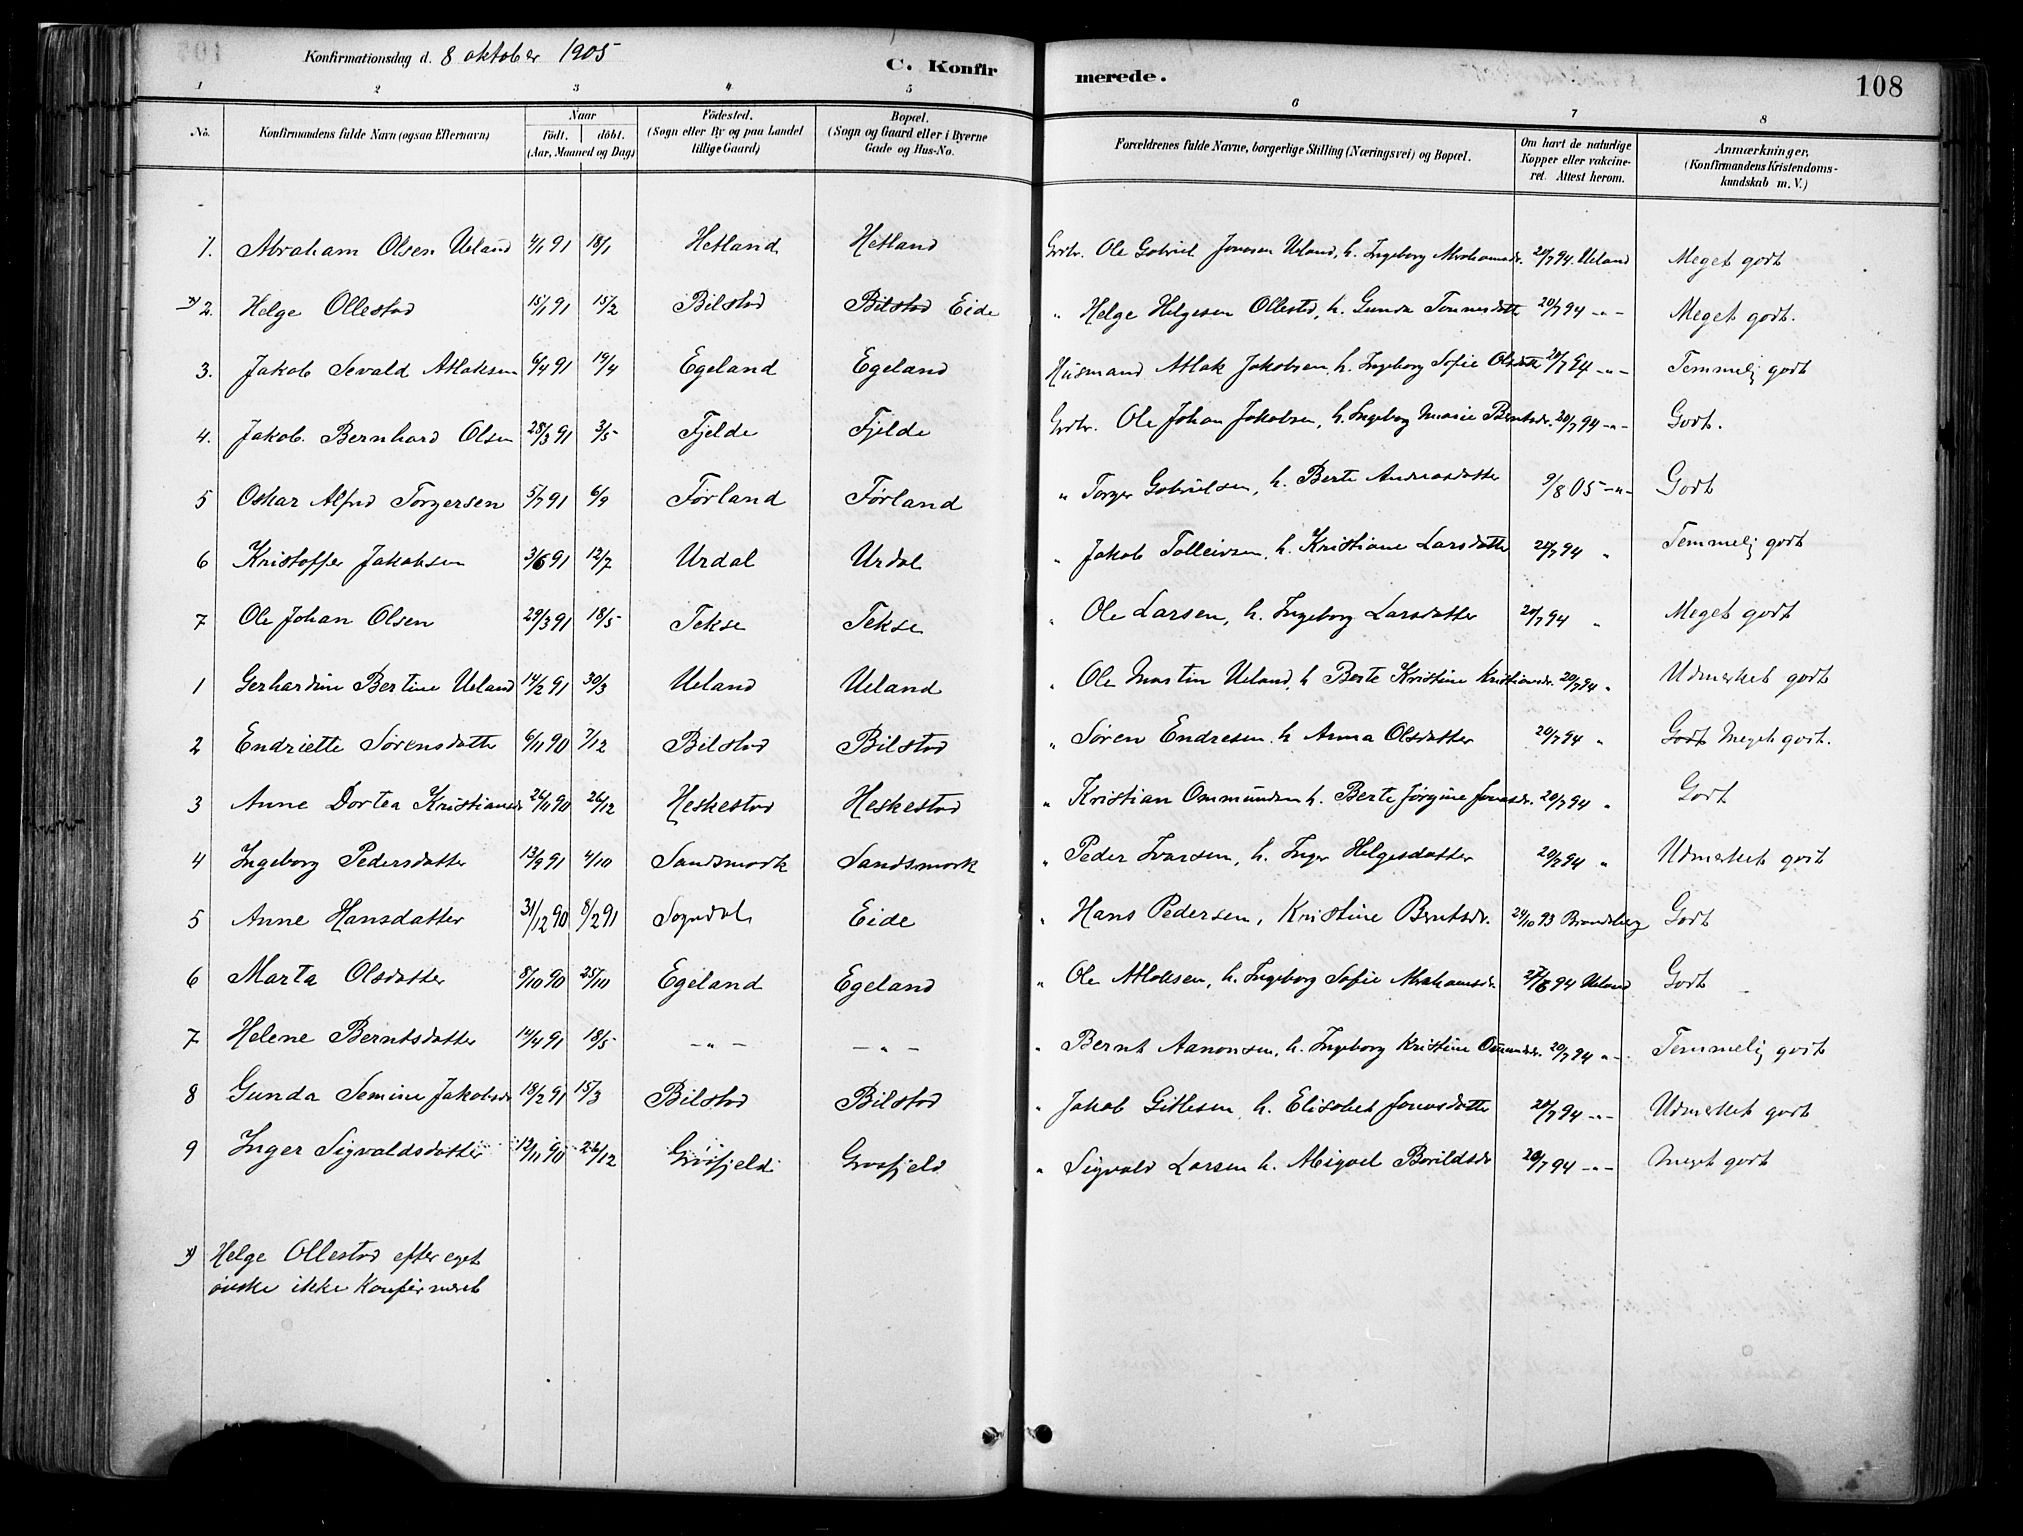 Konfirmationsdag d. 8 oktober 1905
C. Konfirmerede.
108
1 2 3 4 5 6 7 8
No. Konfirmandens fulde Navn (ogsaa Efternavn) Naar födt. döbt. (Aar, Maaned og Dag) Födested. (Sogn eller By og paa Landet tillige Gaard) Bopæl. (Sogn og Gaard eller i Byerne Gade og Hus-No. Forældrenes fulde Navne, borgerlige Stilling (Næringsvei) og Bopæl. Om havt de naturlige Kopper eller vakcineret. Attest herom. Anmærkninger, (Konfirmandens Kristendomskundskab m. V.)
1. Abraham Olsen Ueland 4/1 91 18/1 Hetland Hetland Grdbr. Ole Gabriel Jonasen Ueland, h. Ingeborg Abrahamsdr. 20/7 94 Ueland Meget godt
x) 2. Helge Ollestad 15/1 91 15/2 Bilstad Bilstad Eide " Helge Helgesen Ollestad, h. Gunda Tonnesdatt 20/7 94 -"- Meget godt.
3. Jakob Sevald Atlaksen 6/4 91 19/4 Egeland Egeland Husmand Atlak Jakobsen, h. Ingeborg Sofie Olsdatt 20/7 94 -"- Temmelig godt
4. Jakob Bernhard Olsen 28/3 91 3/5 Fjelde Fjelde Grdbr. Ole Johan Jakobsen, h. Ingeborg Marie Berntsdr. 20/7 94 -"- Godt.
5 Oskar Alfred Torgersen 5/7 91 6/9 Førland Førland " Torger Gabrielsen, h. Berte Andreasdatter 9/8 05 -"- Godt
6 Kristoffer Jakobsen 3/6 91 12/7 Urdal Urdal " Jakob Tolleivsen, h. Kristiane Larsdatter 20/7 94 " Temmelig godt
7 Ole Johan Olsen 29/3 91 18/5 Tekse Tekse " Ole Larsen, h. Ingeborg Larsdatter 20/7 94 " Meget godt
1 Gerhardine Bertine Ueland 14/2 91 30/3 Ueland Ueland " Ole Martin Ueland, h Berte Kristine Kristiansdr. 20/7 94 " Udmerket godt
2 Endriette Sørensdatte 6/11 90 7/12 Bilstad Bilstad " Søren Endresen h Anna Olsdatter 20/7 94 " Godt Meget godt.
3 Anne Dortea Kristiansdr 26/11 90 26/12 Heskestad Heskestad " Kristian Ommundsen h. Berte Jørgine Jonasdr. 20/7 94 " Godt
4 Ingeborg Pedersdatter 13/9 91 4/10 Sandsmark Sandsmark " Peder Ivarsen, h. Inger Helgesdatter 20/7 94 " Udmerket godt
5 Anne Hansdatter 31/12 90 8/2 91 Sogndal Eide " Hans Pedersen, Kristine Berntsdr. 24/10 93 Brandsberg Godt
6 Marta Olsdatter 8/10 90 25/10 Egeland Egeland " Ole Atlaksen, h. Ingeborg Sofie Abrahamsdr. 27/6 94 Ueland Godt
7 Helene Berntsdatter 14/4 91 18/5 -"- -"- " Bernt Aanonsen, h. Ingeborg Kristine Omundsdr. 20/7 94 "- Temmelig godt
8 Gunda Semine Jakobsdr 18/2 91 15/3 Bilstad Bilstad " Jakob Gitlesen h. Elisabet Jonasdatte 20/7 94 -"- Udmerket godt
9 Inger Sigvaldsdatter 12/11 90 26/12 Grøsfjeld Grøsfjeld " Sigvald Larsen h. Abigael Bårildsdr 20/7 94 -"- Meget godt
x) Helge Ollestad efter eget
ønske ikke Konfirmeret